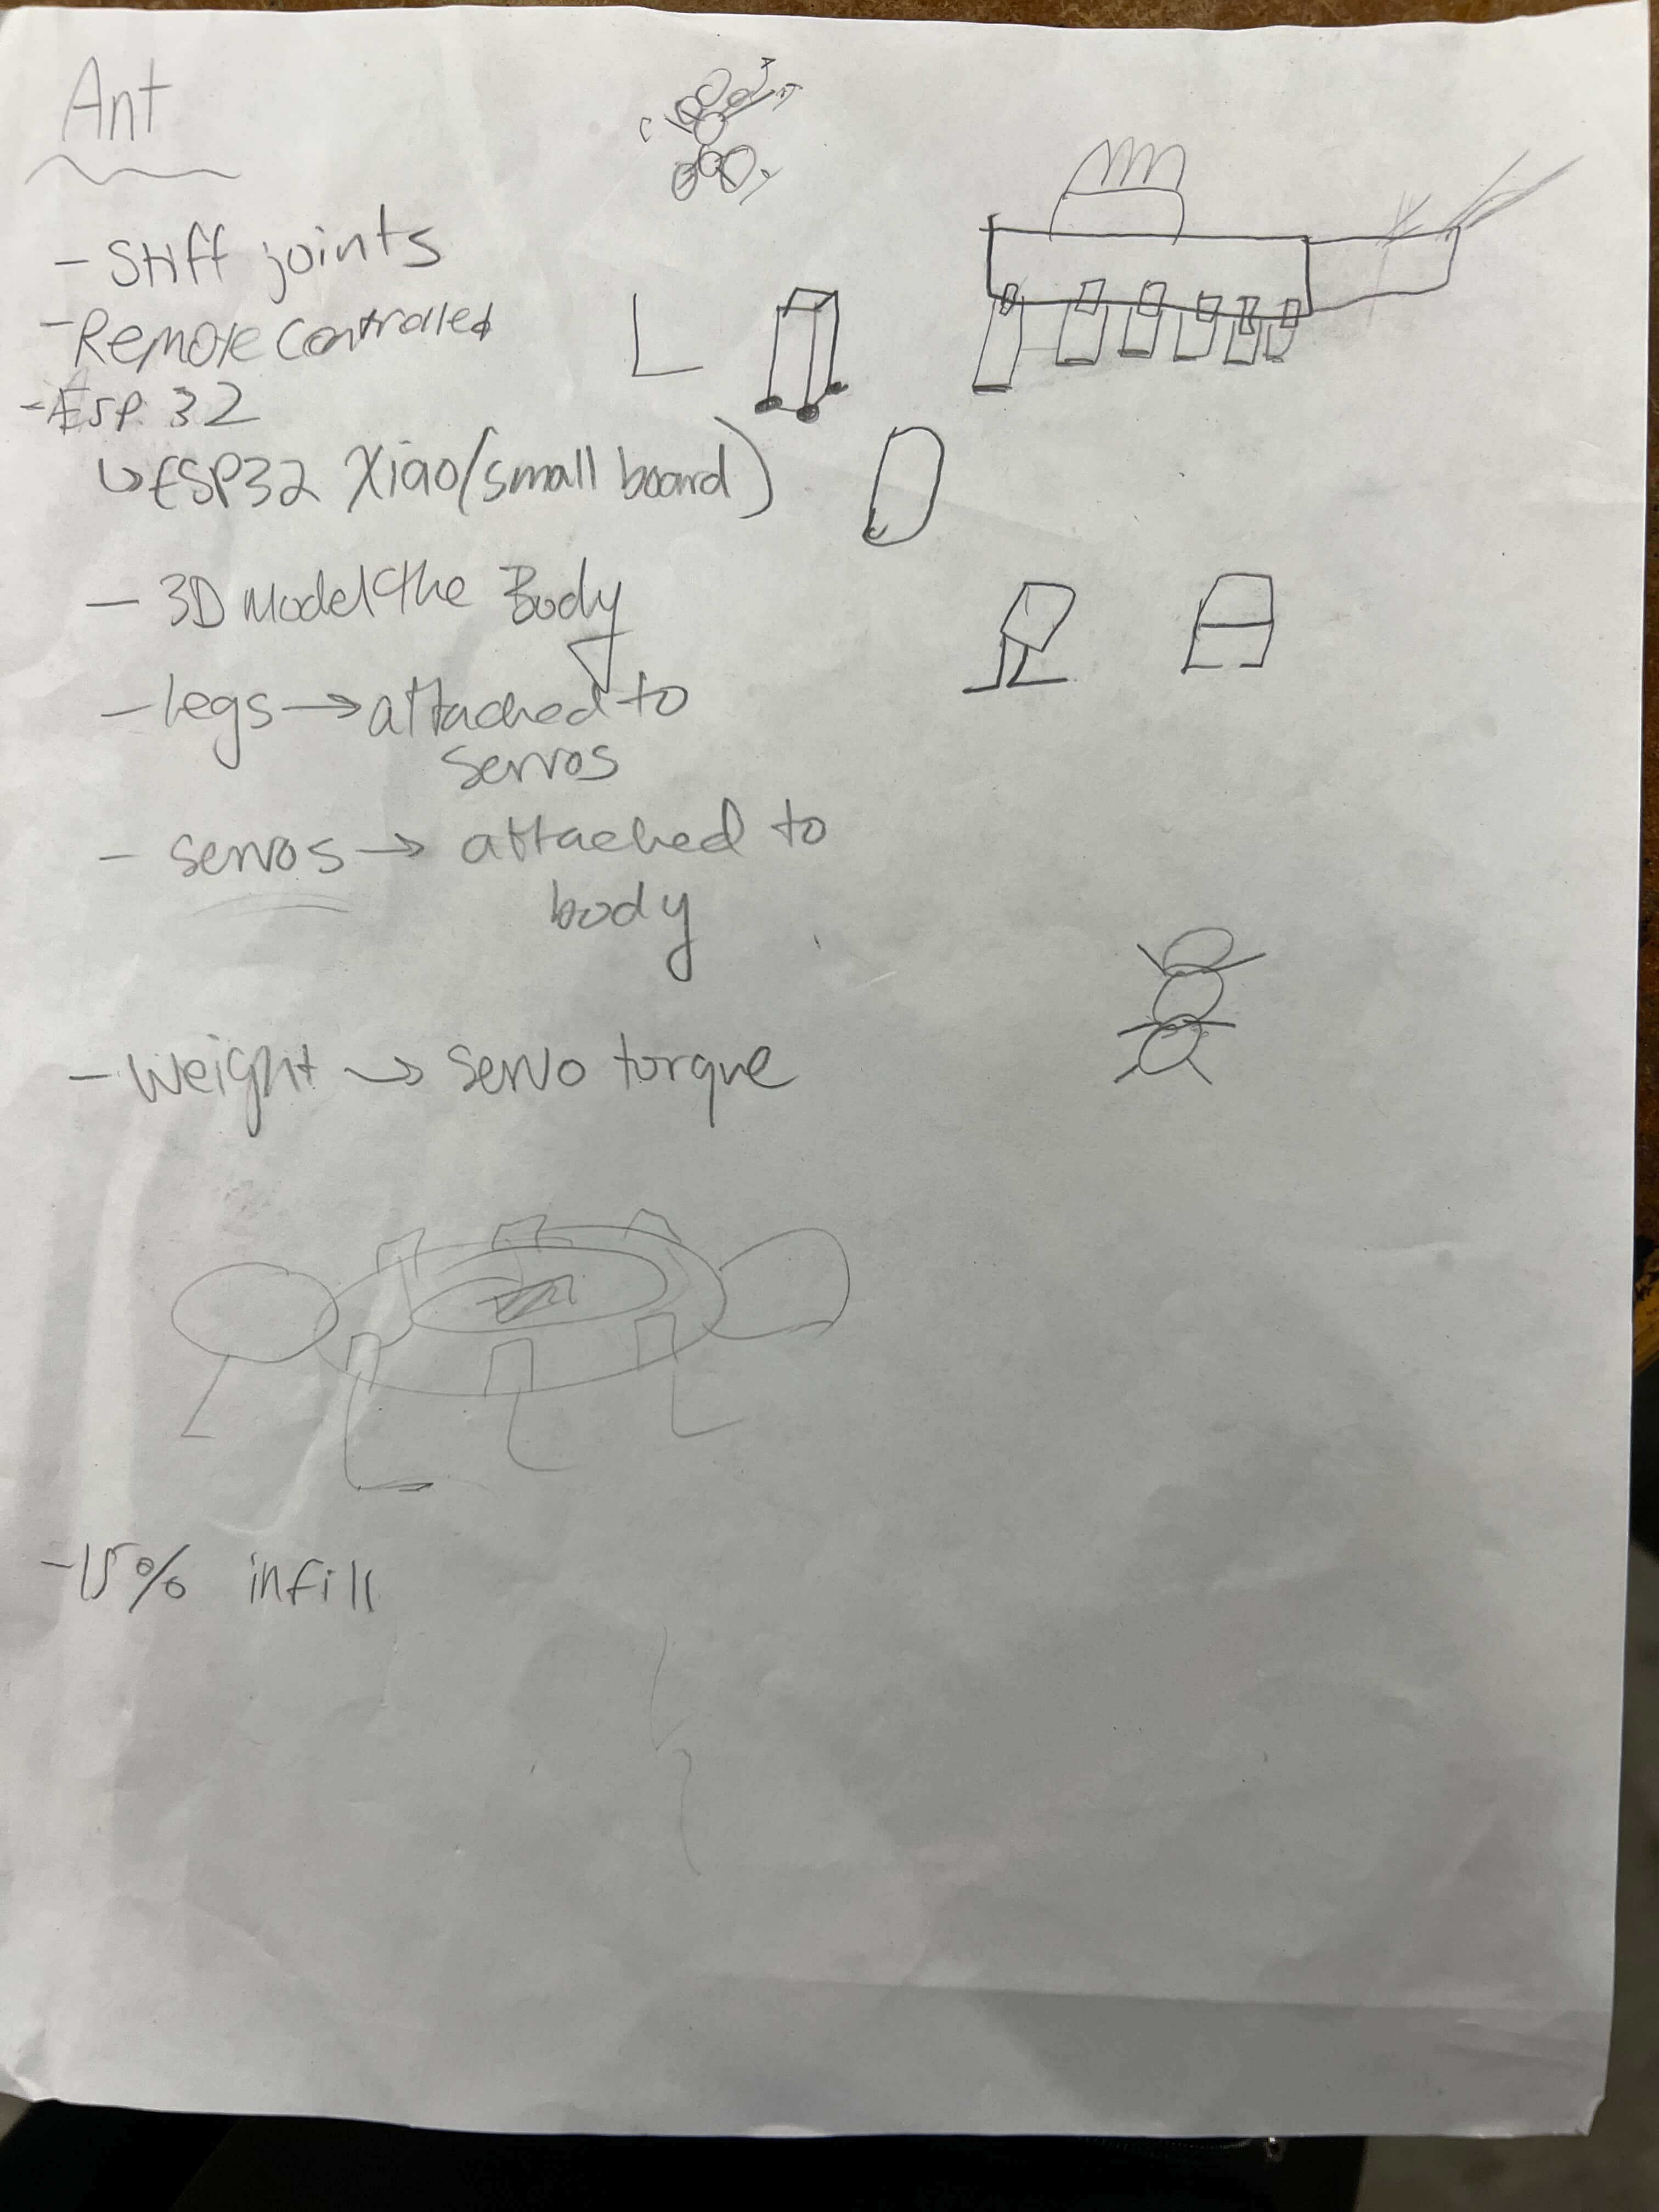 Ant
- Stiff joints
- Remote controlled
- ESP 32
↳ ESP32 Xiao (small board)
- 3D Model the Body
- legs → attached to
servos
- servos → attached to
body
- Weight → servo torque
- 15% infill